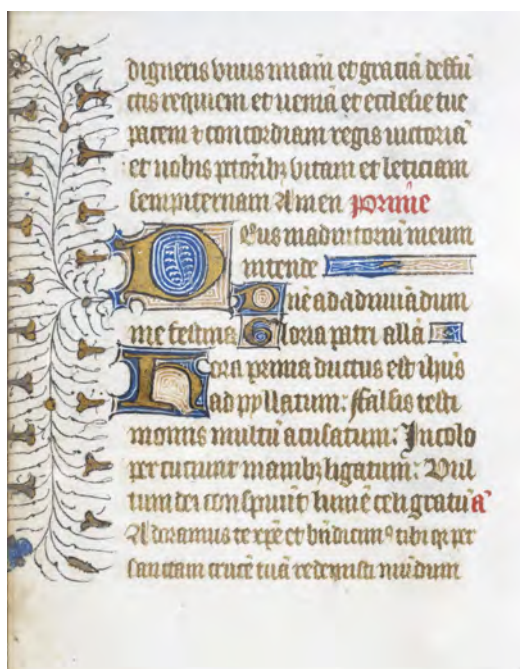 digneris viuis miam et gratiā deffū
ctis requiem et ueniā et ecclesie tue
pacem ⁊ concordiam regis uictoriā
et nobis pctōribꝫ vitam et leticiam
sempiternam Amen prime
Deus in adiutoriū meum
intende
Dne ad adiuuādum
me festina Gloria patri allā
Hora prima ductus est ihūs
ad pyllatum: ffalsis testi
moniis multū acusatum: In colo
percuciunt manibꝫ ligatum: Vul
tum dei conspuūt lumē celi gratū a
Adoramus te xpē et bn̄dicim⁹ tibi qi per
sanctam crucē tuā redemisti mūdum